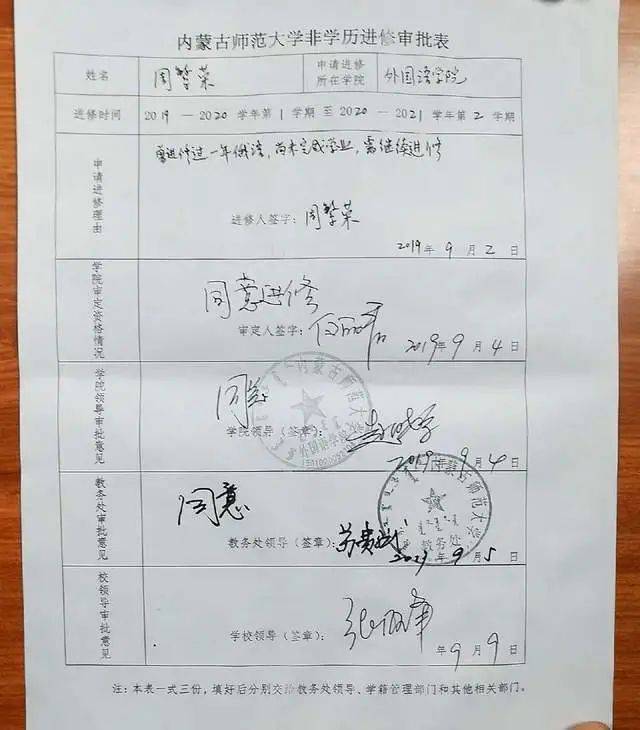 内蒙古师范大学非学历进修审批表
姓名 周繁荣 申请进修所在学院 外国语学院
进修时间 2019 — 2020 学年第 1 学期 至 2020 — 2021 学年第 2 学期
申请进修理由
曾进修过一年俄语，尚未完成学业，需继续进修
进修人签字：周繁荣
2019年 9 月 2 日
学院审定资格情况
同意进修
审定人签字：
2019年 9 月 4 日
学院领导审批意见
同意
内蒙古师范大学
学院领导（签章）：
2019年 9 月 4 日
教务处审批意见
同意
内蒙古师范大学
教务处
教务处领导（签章）：
9 月 5 日
校领导审批意见
学校领导（签章）：
年 9 月 9 日
注：本表一式三份，填好后分别交给教务处领导、学籍管理部门和其他相关部门。